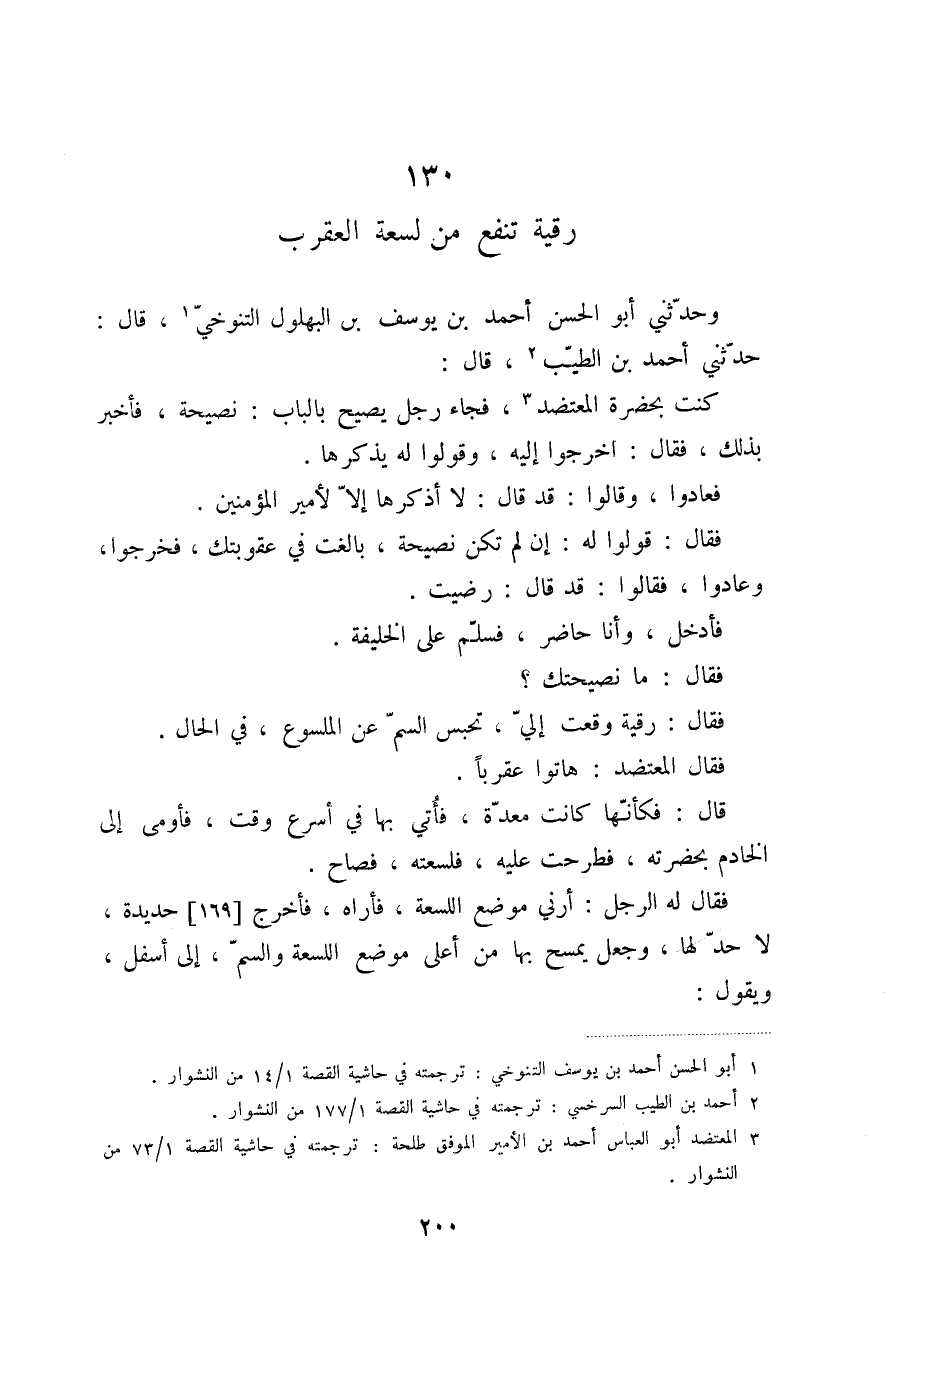 ١٣٠
رقية تنفع من لسعة العقرب
وحدّثني أبو الحسن أحمد بن يوسف بن البهلول التنوخيّ١ ، قال :
حدّثني أحمد بن الطيّب٢ ، قال :
كنت بحضرة المعتضد٣ ، فجاء رجل يصيح بالباب : نصيحة ، فأخبر
بذلك ، فقال : اخرجوا إليه ، وقولوا له يذكرها .
فعادوا ، وقالوا : قد قال : لا أذكرها إلاّ لأمير المؤمنين .
فقال : قولوا له : إن لم تكن نصيحة ، بالغت في عقوبتك ، فخرجوا،
وعادوا ، فقالوا : قد قال : رضيت .
فأدخل ، وأنا حاضر ، فسلّم على الخليفة .
فقال : ما نصيحتك ؟
فقال : رقية وقعت إليّ ، تحبس السمّ عن الملسوع ، في الحال .
فقال المعتضد : هاتوا عقرباً .
قال : فكأنّها كانت معدّة ، فأُتي بها في أسرع وقت ، فأومى إلى
الخادم بحضرته ، فطرحت عليه ، فلسعته ، فصاح .
فقال له الرجل : أرني موضع اللسعة ، فأراه ، فأخرج [١٦٩] حديدة ،
لا حدّ لها ، وجعل يمسح بها من أعلى موضع اللسعة والسمّ ، إلى أسفل ،
ويقول :
١ أبو الحسن أحمد بن يوسف التنوخي : ترجمته في حاشية القصة ١٤/١ من النشوار .
٢ أحمد بن الطيب السرخسي : ترجمته في حاشية القصة ١٧٧/١ من النشوار .
٣ المعتضد أبو العباس أحمد بن الأمير الموفق طلحة : ترجمته في حاشية القصة ٧٣/١ من
النشوار .
٢٠٠